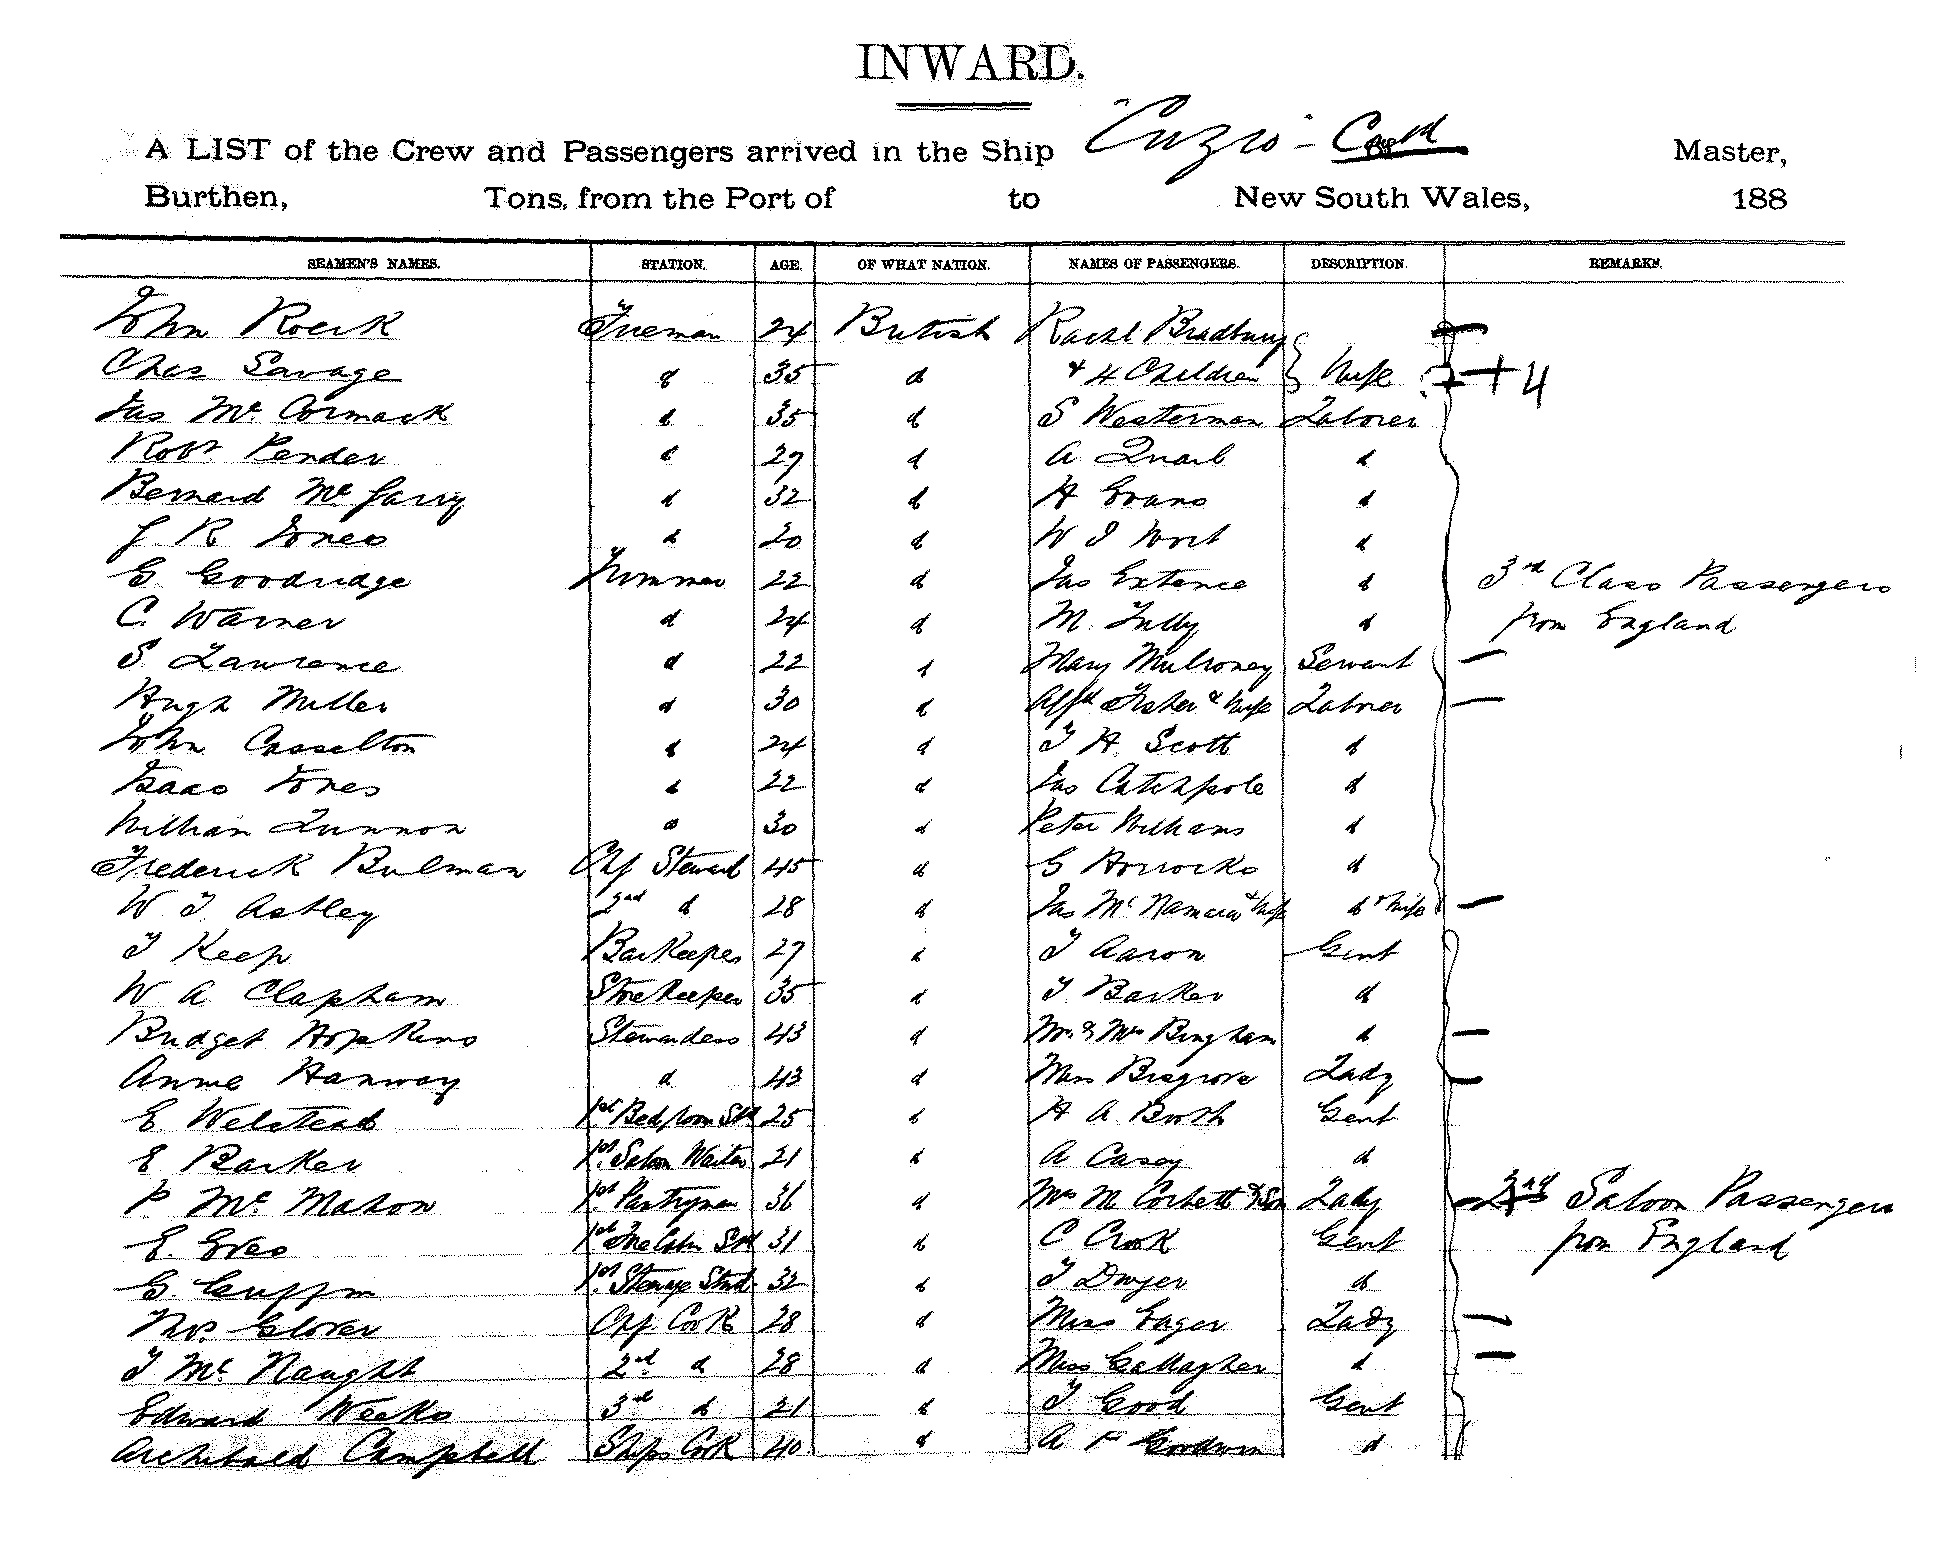 INWARD.
A LIST of the Crew and Passengers arrived in the Ship "Cuzco" - Contd Master,
Burthen, Tons, from the Port of to New South Wales, 188
SEAMEN'S NAMES. STATION. AGE. OF WHAT NATION. NAMES OF PASSENGERS. DESCRIPTION. REMARKS.
John Rourk Fireman 24 British Rachl Bradbury
Chas Savage d 35 d & 4 Children Wife + 4
Jas Mc Cormack d 35 d S Westerman Laborer
Robt Pender d 29 d A Quail d
Bernard Mc Garry d 32 d H Evans d
J R Jones d 20 d W J Wort d
G Goodridge Trimmer 22 d Jas Extence d 3rd Class Passengers
C. Warner d 24 d M. Tully d from England
S. Lawrence d 22 d Mary Mulroney Servant —
Hugh Miller d 30 d Alfd Fisher & Wife Laborer —
John Casselton d 24 d J H Scott d
Isaac Jones d 22 d Jas Catchpole d
William Lunnon d 30 d Peter Williams d
Frederick Bulman Chf Steward 45 d G Horrocks d
W J Astley 2nd d 28 d Jas Mc Namara & Wife d & Wife —
J Keep Barkeeper 29 d J Aaron Gent
W A Clapham Storekeeper 35 d J Barker d
Bridget Hopkins Stewardess 43 d Mr & Mrs Bingham d —
Annie Hanway d 43 d Miss Bisgrove Lady —
E Welstead 1st Bedroom Std 25 d H A Booth Gent
E Barker 1st Saloon Waiter 21 d A Casey d
P Mc Mahon 1st Pantryman 36 d Mrs M Corbett & Son Lady 2nd Saloon Passengers
E. Eves 1st 31 d C Crook Gent from England
G. Griffin 1st Steerage Std 32 d J Dwyer d
Thos Glover Chf Cook 28 d Miss Eager Lady —
J Mc Naught 2nd d 28 d Miss Gallagher d —
Edward Weeks 3rd d 21 d J Good Gent
Archibald Campbell Ships Cook 40 d A F Goodwin d